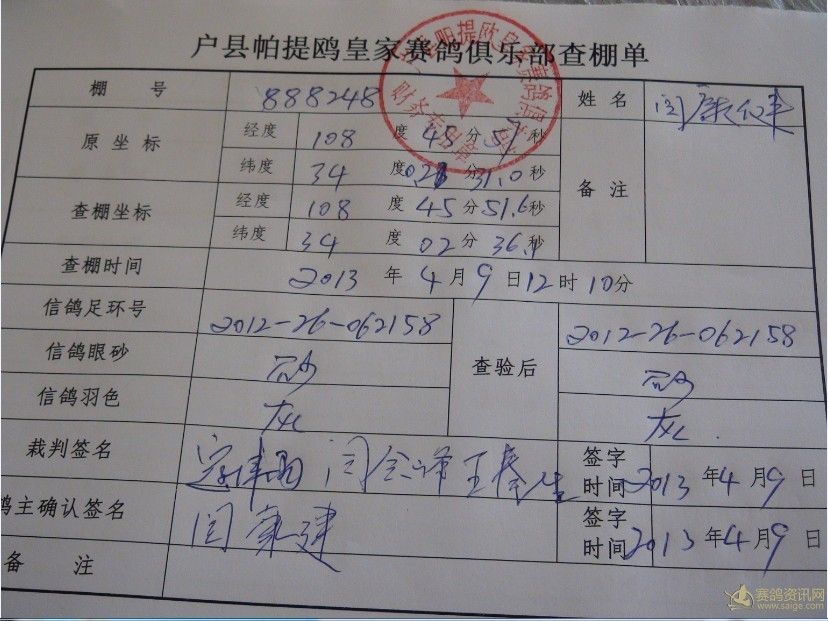 户县帕提鸥皇家赛鸽俱乐部查棚单
棚 号 888248 姓 名 闫
原坐标 经度 108 度 45 分 秒 备 注
纬度 34 度 分 31.0 秒
查棚坐标 经度 108 度 45 分 51.6 秒
纬度 34 度 02 分 36. 秒
查棚时间 2013 年 4 月 9 日 12 时 10 分
信鸽足环号 2012-26-062158 查验后 2012-26-062158
信鸽眼砂 砂 砂
信鸽羽色 灰 灰
裁判签名 闫 王 签字时间 2013 年 4 月 9 日
鸽主确认签名 闫 建 签字时间 2013 年 4 月 9 日
备 注
赛鸽资讯网
www.saige.com